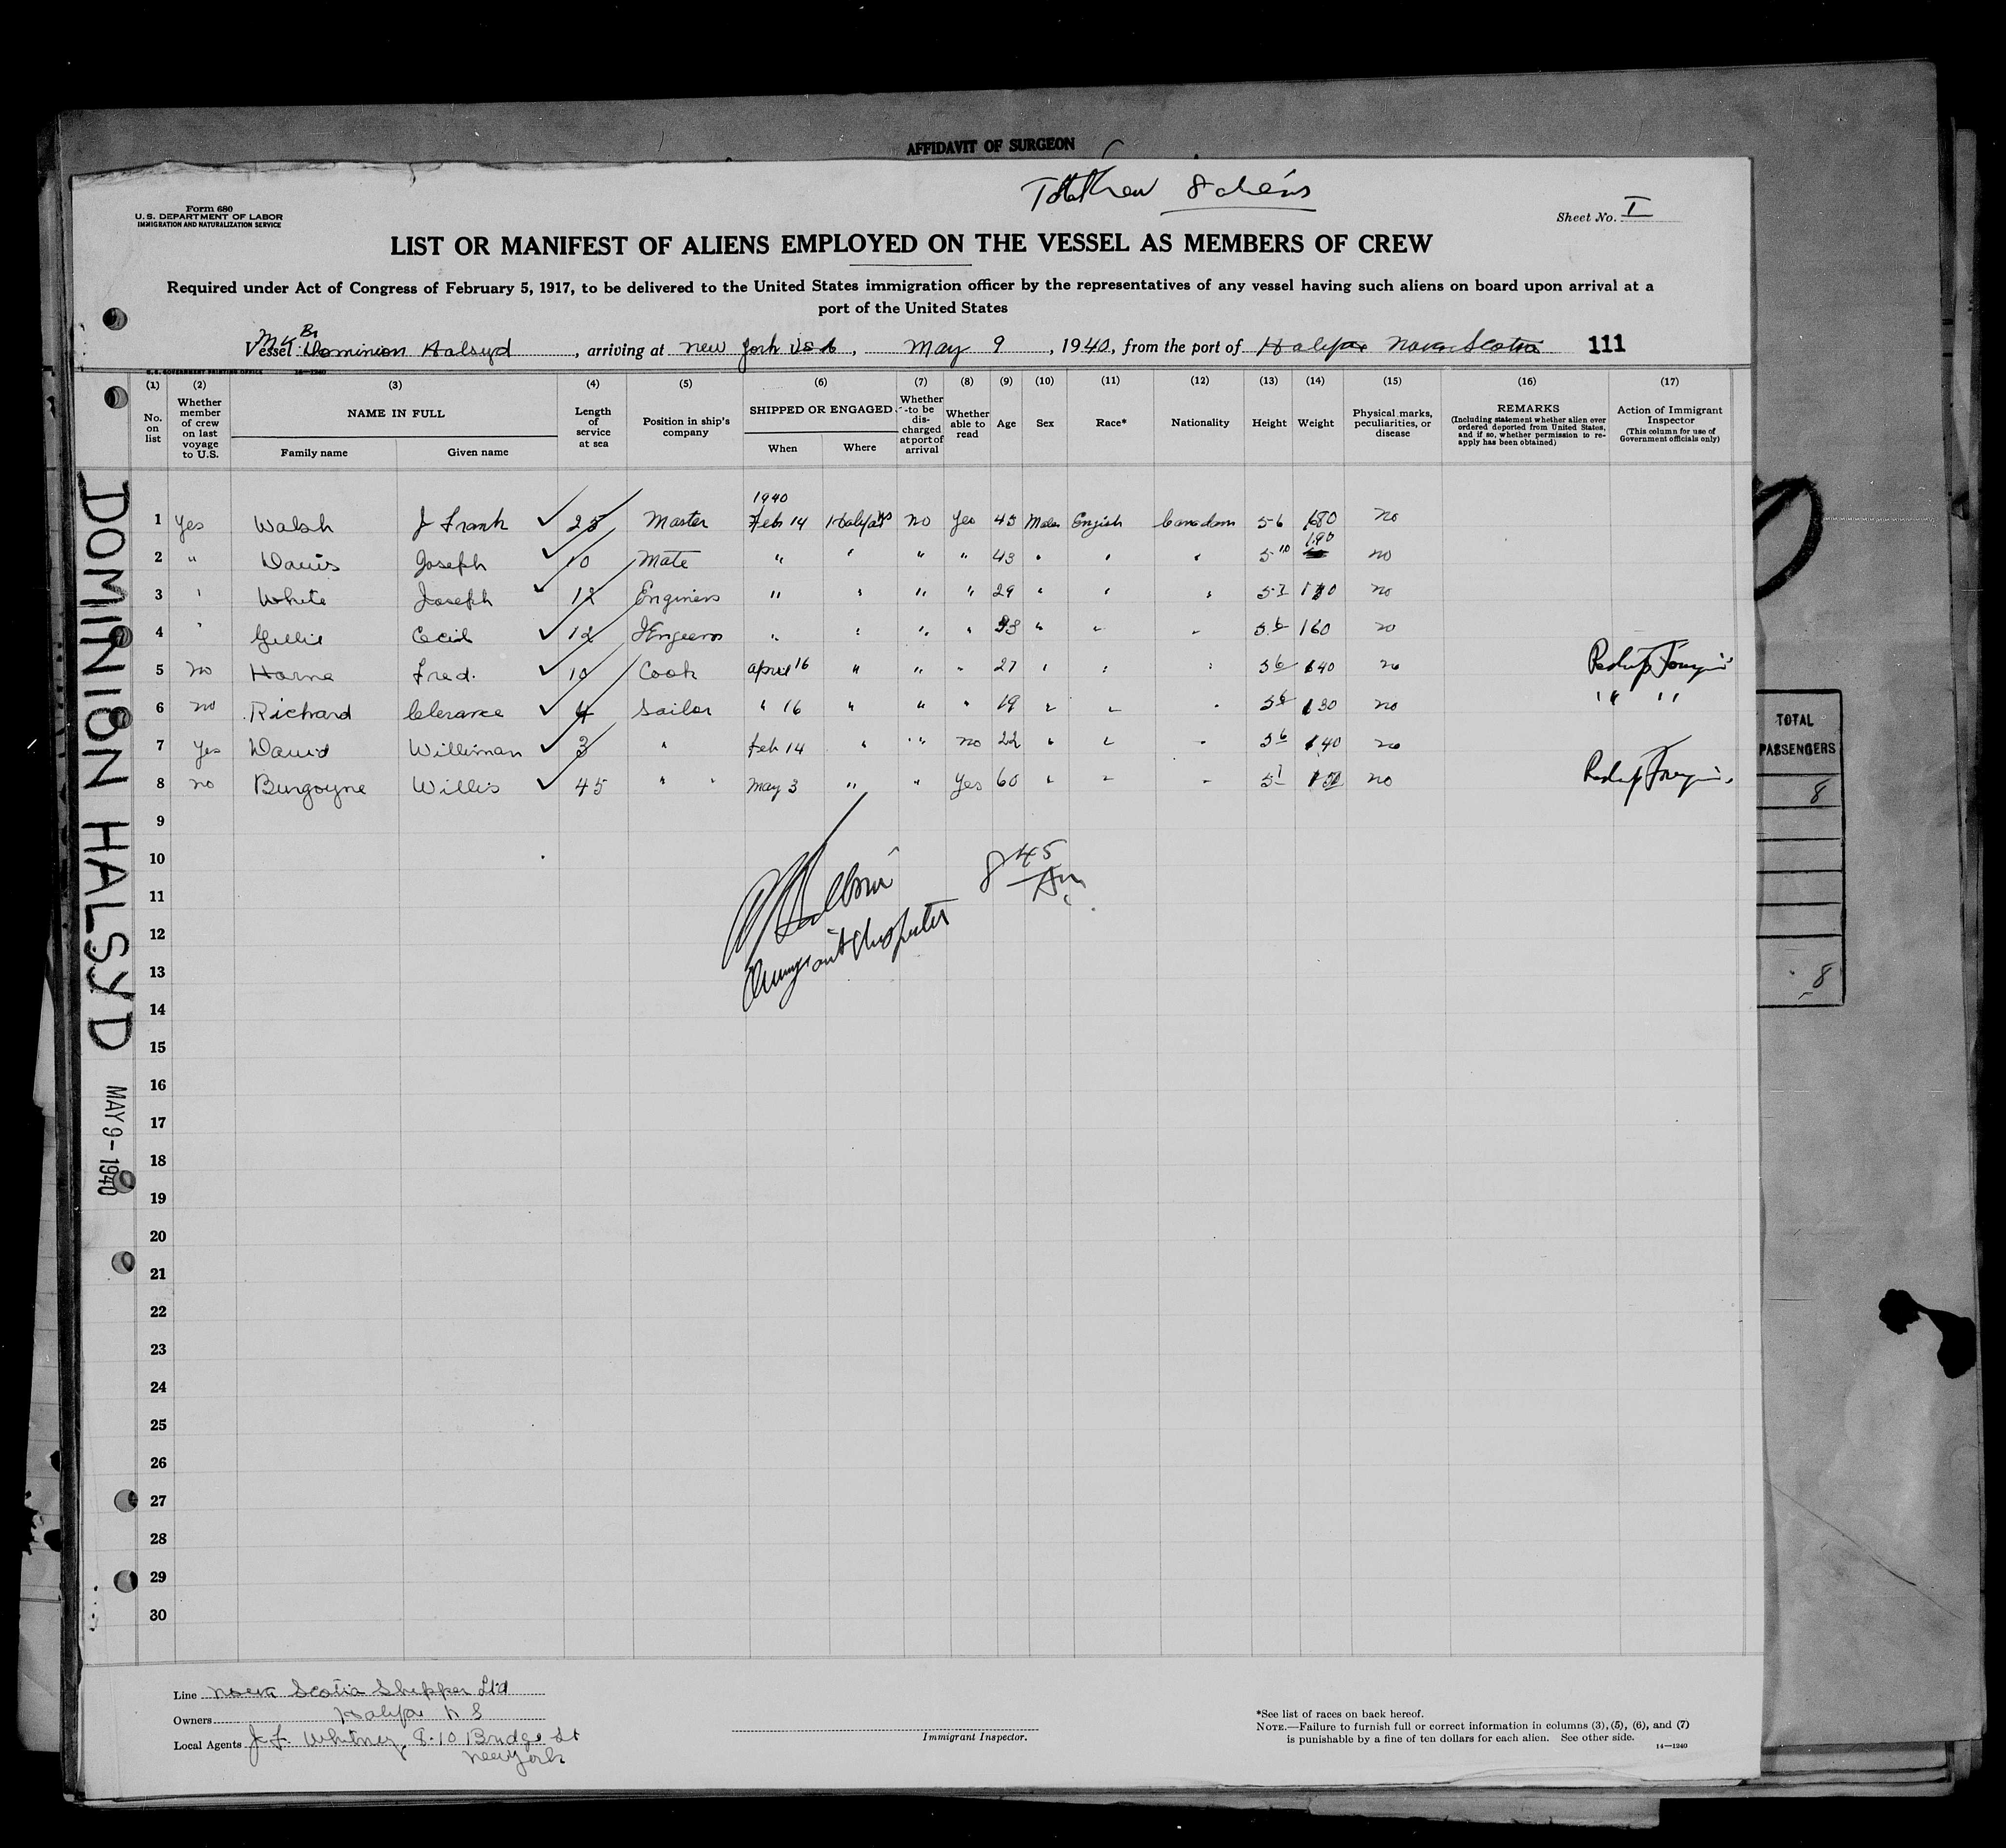 AFFIDAVIT OF SURGEON
Total Crew 8 aliens
Form 680
U. S. DEPARTMENT OF LABOR
IMMIGRATION AND NATURALIZATION SERVICE
Sheet No. I
LIST OR MANIFEST OF ALIENS EMPLOYED ON THE VESSEL AS MEMBERS OF CREW
Required under Act of Congress of February 5, 1917, to be delivered to the United States immigration officer by the representatives of any vessel having such aliens on board upon arrival at a
port of the United States
Vessel Br Dominion Halsyd, arriving at New York USA, May 9, 1940, from the port of Halifax Nova Scotia 111
U. S. GOVERNMENT PRINTING OFFICE 14—1240
(1) (2) (3) (4) (5) (6) (7) (8) (9) (10) (11) (12) (13) (14) (15) (16) (17)
No. on list
Whether member of crew on last voyage to U.S.
NAME IN FULL
Family name Given name
Length of service at sea
Position in ship's company
SHIPPED OR ENGAGED
When Where
Whether to be discharged at port of arrival
Whether able to read
Age Sex Race* Nationality Height Weight
Physical marks, peculiarities, or disease
REMARKS
(Including statement whether alien ever ordered deported from United States, and if so, whether permission to reapply has been obtained)
Action of Immigrant Inspector
(This column for use of Government officials only)
1940
1 Yes Walsh J Frank ✓ 25 Master Feb 14 Halifax NS no Yes 45 Male English Canadian 5 6 180 no
2 " Davis Joseph ✓ 10 Mate " " " " 43 " " " 5 10 190 no
3 " White Joseph ✓ 12 Engineer " " " " 29 " " " no
4 " Gillis Cecil ✓ 12 " " " " " " " 5 6 160 no
5 no Horne Fred. ✓ 10 Cook April 16 " " " 27 " " " 5 6 140 no
6 no Richard Clerance ✓ 4 Sailor " 16 " " " 19 " " " 130 no " "
7 Yes David Williman ✓ 3 " Feb 14 " " no 22 " " " 5 6 140 no
8 no Burgoyne Willis ✓ 45 " " May 3 " " Yes 60 " " " no
9
10
8 45 Am
11
12
Immigrant Inspector
13
14
15
16
17
18
19
20
21
22
23
24
25
26
27
28
29
30
DOMINION HALSYD MAY 9-1940
TOTAL
PASSENGERS
8
8
Line Nova Scotia Shipper Ltd
Owners Halifax N S
Local Agents J.F. Whitney, 8-10 Bridge St
New York
Immigrant Inspector.
*See list of races on back hereof.
NOTE.—Failure to furnish full or correct information in columns (3), (5), (6), and (7)
is punishable by a fine of ten dollars for each alien. See other side.
14—1240